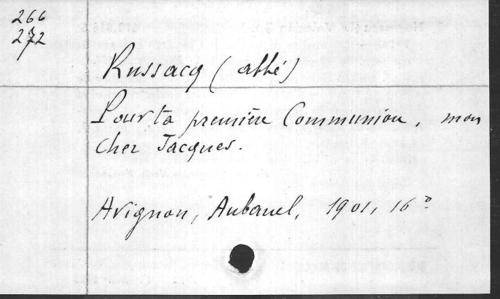 266
272
Russacq (abbé)
Pour ta première Communion, mon
cher Jacques.
Avignon, Aubanel, 1901, 16°